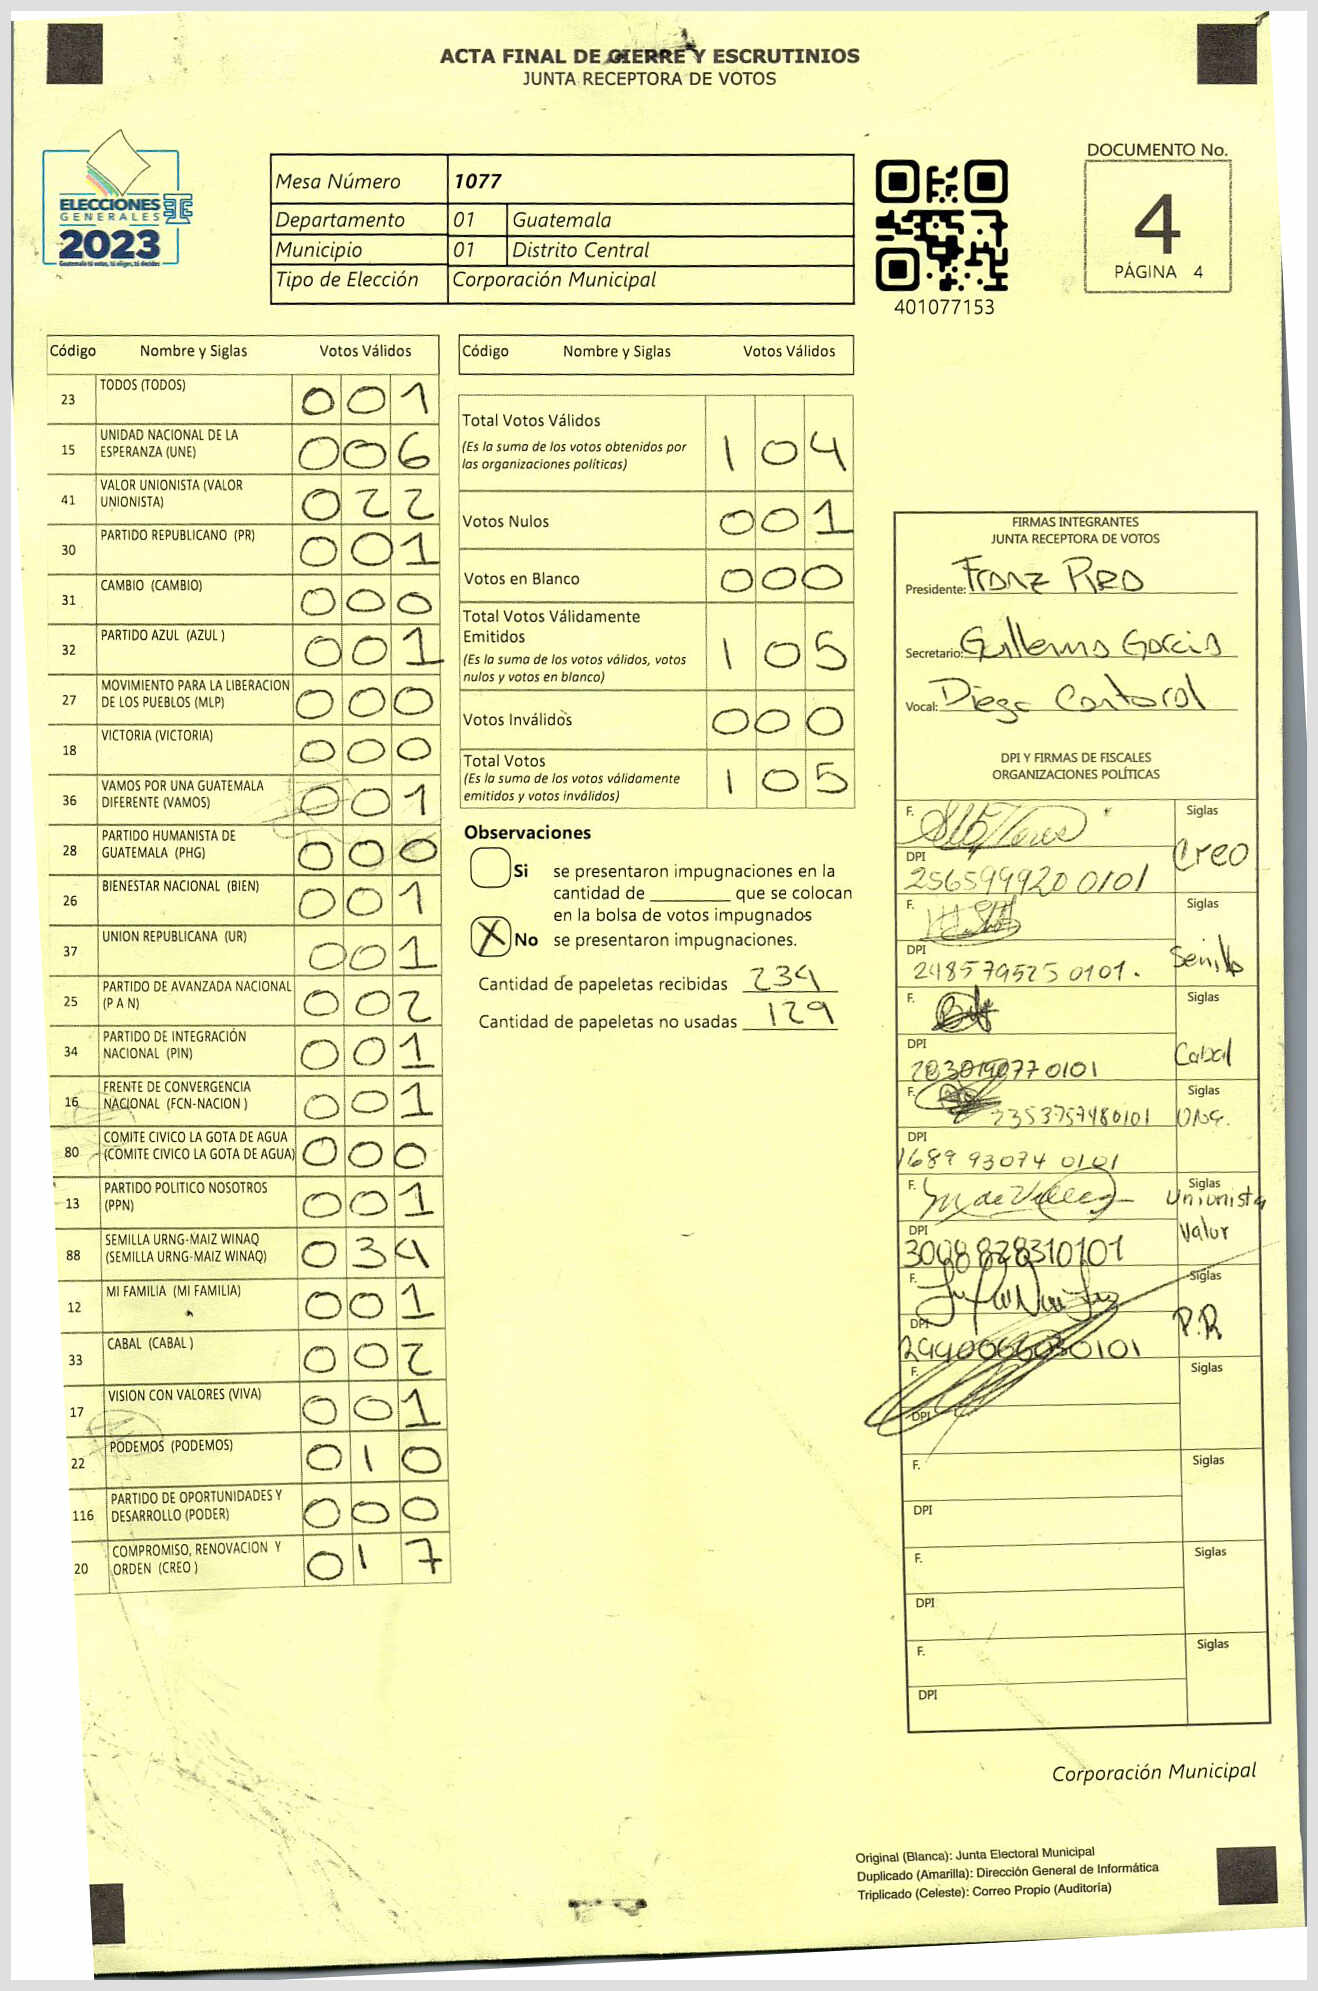 ACTA FINAL DE CIERRE Y ESCRUTINIOS
JUNTA RECEPTORA DE VOTOS
ELECCIONES
GENERALES
2023
Guatemala tú votas, tú eliges, tú decides
Mesa Número 1077
Departamento 01 Guatemala
Municipio 01 Distrito Central
Tipo de Elección Corporación Municipal
401077153
DOCUMENTO No.
4
PÁGINA 4
Código Nombre y Siglas Votos Válidos
23 TODOS (TODOS) 0 0 1
15 UNIDAD NACIONAL DE LA
ESPERANZA (UNE) 0 0 6
41 VALOR UNIONISTA (VALOR
UNIONISTA) 0 2 2
30 PARTIDO REPUBLICANO (PR) 0 0 1
31 CAMBIO (CAMBIO) 0 0 0
32 PARTIDO AZUL (AZUL ) 0 0 1
27 MOVIMIENTO PARA LA LIBERACION
DE LOS PUEBLOS (MLP) 0 0 0
18 VICTORIA (VICTORIA) 0 0 0
36 VAMOS POR UNA GUATEMALA
DIFERENTE (VAMOS) 0 0 1
28 PARTIDO HUMANISTA DE
GUATEMALA (PHG) 0 0 0
26 BIENESTAR NACIONAL (BIEN) 0 0 1
37 UNION REPUBLICANA (UR) 0 0 1
25 PARTIDO DE AVANZADA NACIONAL
(P A N) 0 0 2
34 PARTIDO DE INTEGRACIÓN
NACIONAL (PIN) 0 0 1
16 FRENTE DE CONVERGENCIA
NACIONAL (FCN-NACION ) 0 0 1
80 COMITE CIVICO LA GOTA DE AGUA
(COMITE CIVICO LA GOTA DE AGUA) 0 0 0
13 PARTIDO POLITICO NOSOTROS
(PPN) 0 0 1
88 SEMILLA URNG-MAIZ WINAQ
(SEMILLA URNG-MAIZ WINAQ) 0 3 4
12 MI FAMILIA (MI FAMILIA) 0 0 1
33 CABAL (CABAL ) 0 0 2
17 VISION CON VALORES (VIVA) 0 0 1
22 PODEMOS (PODEMOS) 0 1 0
116 PARTIDO DE OPORTUNIDADES Y
DESARROLLO (PODER) 0 0 0
20 COMPROMISO, RENOVACION Y
ORDEN (CREO ) 0 1 7
Código Nombre y Siglas Votos Válidos
Total Votos Válidos
(Es la suma de los votos obtenidos por
las organizaciones políticas) 1 0 4
Votos Nulos 0 0 1
Votos en Blanco 0 0 0
Total Votos Válidamente
Emitidos
(Es la suma de los votos válidos, votos
nulos y votos en blanco) 1 0 5
Votos Inválidos 0 0 0
Total Votos
(Es la suma de los votos válidamente
emitidos y votos inválidos) 1 0 5
Observaciones
Si se presentaron impugnaciones en la
cantidad de ________ que se colocan
en la bolsa de votos impugnados
X No se presentaron impugnaciones.
Cantidad de papeletas recibidas 234
Cantidad de papeletas no usadas 129
FIRMAS INTEGRANTES
JUNTA RECEPTORA DE VOTOS
Presidente: Franz
Secretario: Guillermo Garcia
Vocal: Diego Cantoral
DPI Y FIRMAS DE FISCALES
ORGANIZACIONES POLÍTICAS
F. Siglas
Creo
DPI
256599920 0101
F. Siglas
Semilla
DPI
248579525 0101.
F. Siglas
Cabal
DPI
F. Siglas
2353757480101
DPI
1689 93074 0101
F. Siglas
Unionista
Valor
DPI
3008828310101
F. Siglas
P.R
DPI
F. Siglas
DPI
F. Siglas
DPI
F. Siglas
DPI
F. Siglas
DPI
Corporación Municipal
Original (Blanca): Junta Electoral Municipal
Duplicado (Amarilla): Dirección General de Informática
Triplicado (Celeste): Correo Propio (Auditoría)